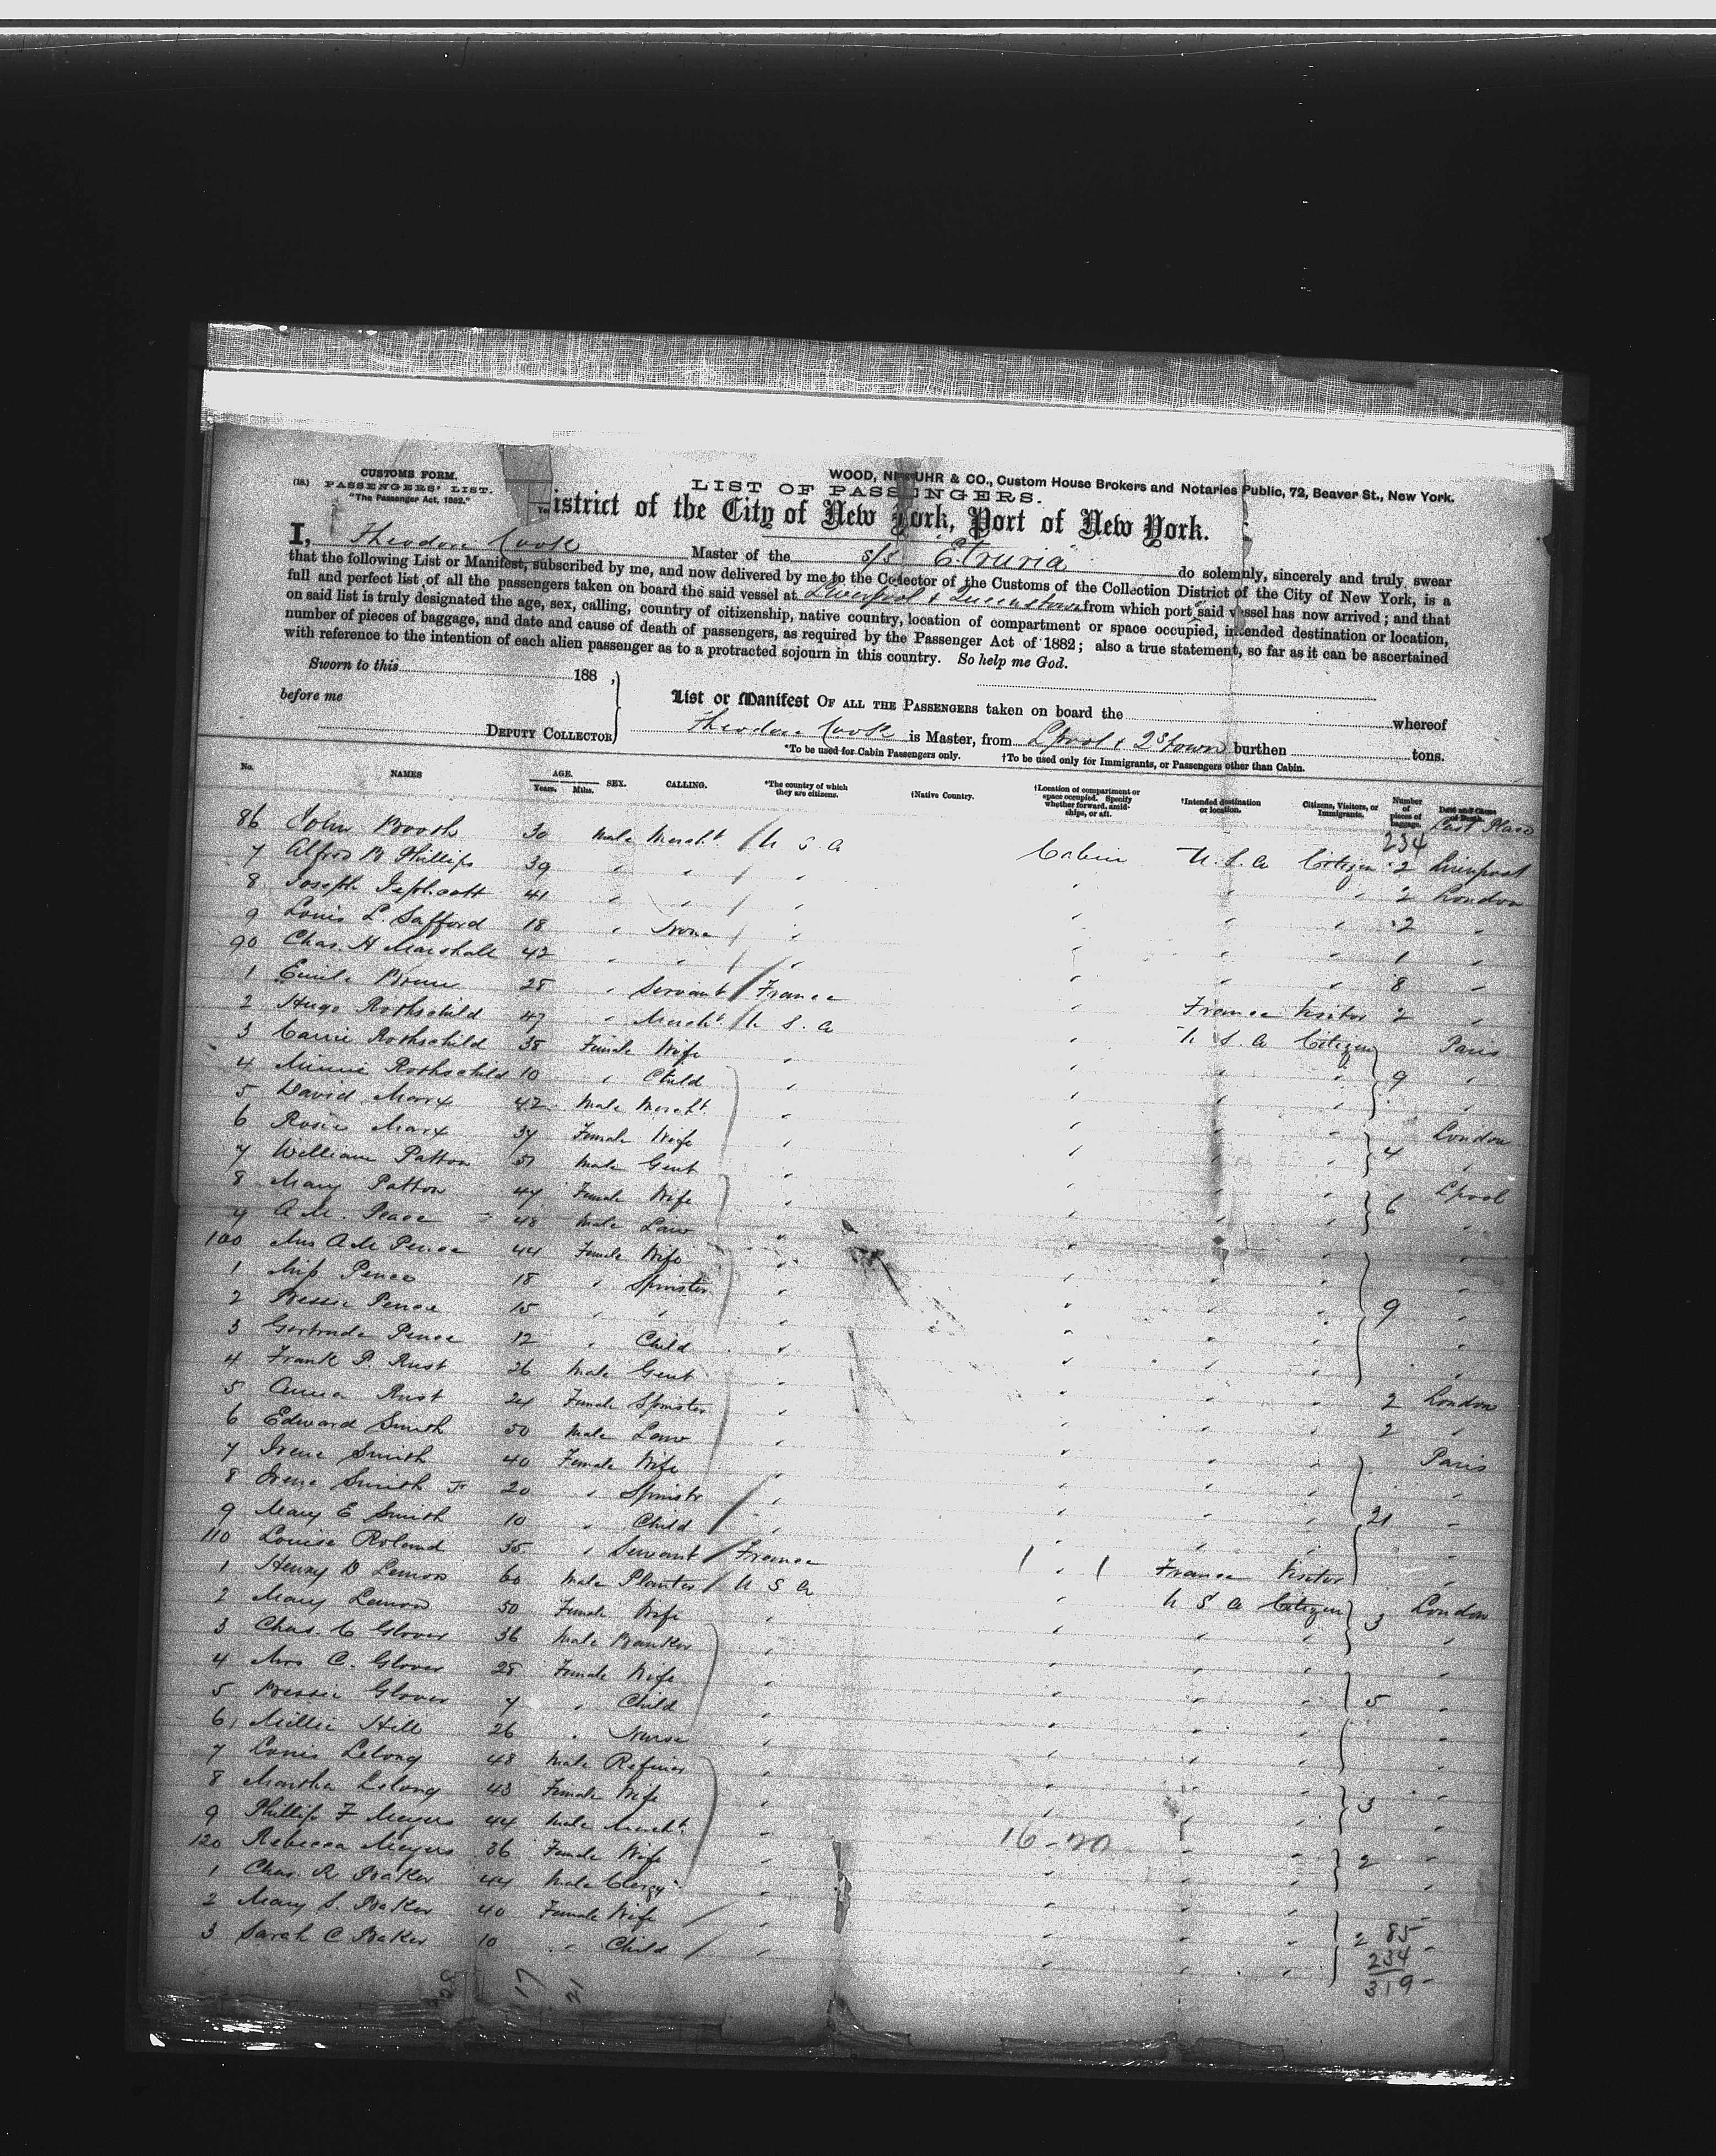 CUSTOMS FORM.
(18.) PASSENGERS' LIST.
"The Passenger Act, 1882."
WOOD, NIEBUHR & CO., Custom House Brokers and Notaries Public, 72, Beaver St., New York.
LIST OF PASSENGERS.
District of the City of New York, Port of New York.
I, Theodore Cook Master of the s/s Etruria do solemnly, sincerely and truly swear
that the following List or Manifest, subscribed by me, and now delivered by me to the Collector of the Customs of the Collection District of the City of New York, is a
full and perfect list of all the passengers taken on board the said vessel at Liverpool & Queenstown from which port said vessel has now arrived; and that
on said list is truly designated the age, sex, calling, country of citizenship, native country, location of compartment or space occupied, intended destination or location,
number of pieces of baggage, and date and cause of death of passengers, as required by the Passenger Act of 1882; also a true statement, so far as it can be ascertained
with reference to the intention of each alien passenger as to a protracted sojourn in this country. So help me God.
Sworn to this 188 ,
before me
DEPUTY COLLECTOR
List or Manifest OF ALL THE PASSENGERS taken on board the whereof
Theodore Cook is Master, from Lpool & Qstown burthen tons.
*To be used for Cabin Passengers only. †To be used only for Immigrants, or Passengers other than Cabin.
No. NAMES AGE. Years. Mths. SEX. CALLING. *The country of which they are citizens. †Native Country. †Location of compartment or space occupied. Specify whether forward, amidships, or aft. †Intended destination or location. Citizens, Visitors, or Immigrants. Number of pieces of baggage. Date and Cause of Death.
Last Place
234
86 John Booth 30 Male Mercht U S A Cabin U. S. A Citizen 2 Liverpool
7 Alfred B Phillips 39 " " " " " " 2 London
8 Joseph 41 " " " " " " 2 "
9 Louis L. Safford 18 " None " " " " 1 "
90 Chas. H Marshall 42 " " " " " " 8 "
1 Emile 28 " Servant France " France Visitor 2 "
2 Hugo Rothschild 47 " Mercht. U S. A " U S. A Citizen Paris
3 Carrie Rothschild 38 Female Wife " " " " 9 "
4 Minnie Rothschild 10 " Child " " " " "
5 David Marx 42 Male Mercht " " " " London
6 Rosie Marx 34 Female Wife " " " " 4 "
7 William Patton 51 Male Gent " " " " Lpool
8 Mary Patton 47 Female Wife " " " " 6 "
9 A M. Pence 48 Male Law " " " " "
100 Mrs A M Pence 44 Female Wife " " " " "
1 Miss Pence 18 " Spinster " " " " 9 "
2 Bessie Pence 15 " " " " " " "
3 Gertrude Pence 12 " Child " " " " "
4 Frank P. Rust 26 Male Gent " " " " 2 London
5 Anna Rust 24 Female Spinster " " " " 2 "
6 Edward Smith 50 Male Law " " " " Paris
7 Irene Smith 40 Female Wife " " " " "
8 Irene Smith Jr 20 " Spinstr " " " " 21 "
9 Mary E Smith 10 " Child " " " " "
110 Louise Roland 35 " Servant France " France Visitor "
1 Henry D Lemon 60 Male Planter U S A " U S A Citizen 3 London
2 Mary Lemon 50 Female Wife " " " " "
3 Chas. C Glover 36 Male Banker " " " " "
4 Mrs C. Glover 28 Female Wife " " " " 5 "
5 Bessie Glover 7 " Child " " " " "
6 Millie Hill 26 " Nurse " " " " "
7 Louis Lelong 48 Male Refiner " " " " 3 "
8 Martha Lelong 43 Female Wife " " " " "
9 Phillip F Meyers 44 Male Mercht. " " " " 2 "
120 Rebecca Meyers 36 Female Wife " " " " "
1 Chas. R Baker 44 Male Clergy " " " " "
2 Mary S. Baker 40 Female Wife " " " " 2 "
3 Sarah C Baker 10 " Child " " " " "
16-20
85
234
319
17
21